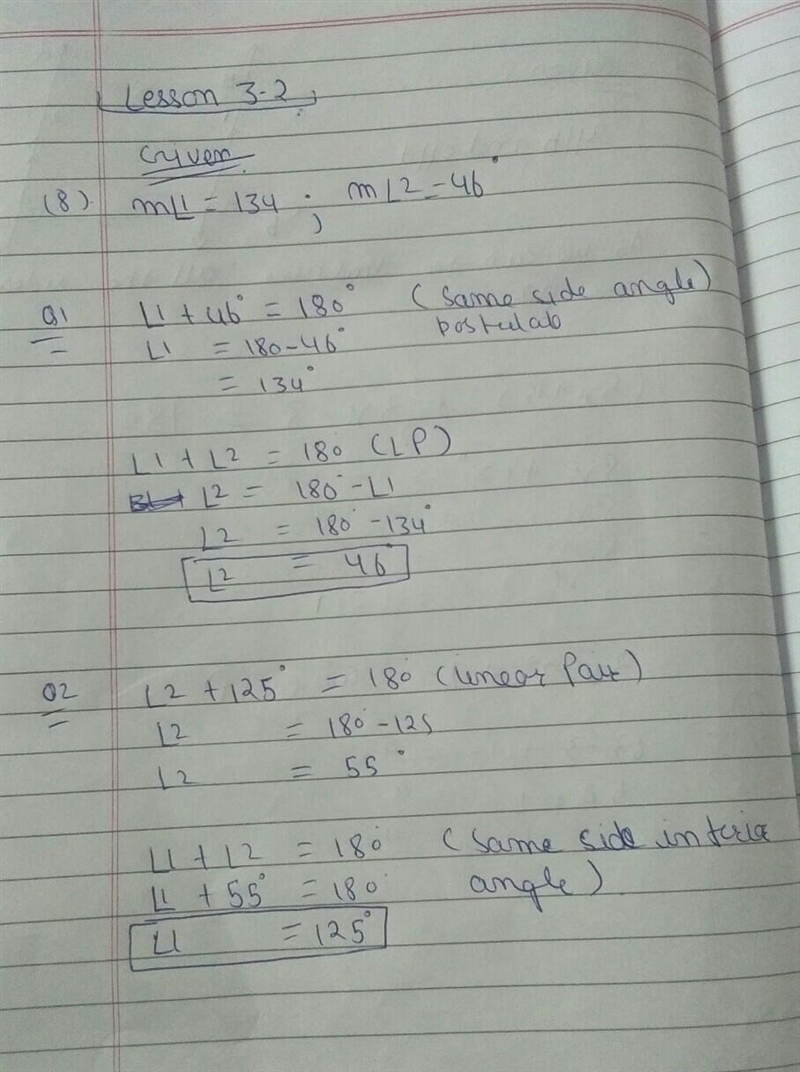 Lesson 3-2
Given
(8) m∠1 = 134 ; m∠2 = 46°
Q1 ∠1 + 46° = 180° (Same side angle)
∠1 = 180 - 46° postulab
= 134°
∠1 + ∠2 = 180 (LP)
∠2 = 180° - ∠1
∠2 = 180° - 134°
∠2 = 46°
Q2 ∠2 + 125° = 180 (Linear Pair)
∠2 = 180° - 125
∠2 = 55°
∠1 + ∠2 = 180° (Same side interior
∠1 + 55° = 180° angle)
∠1 = 125°